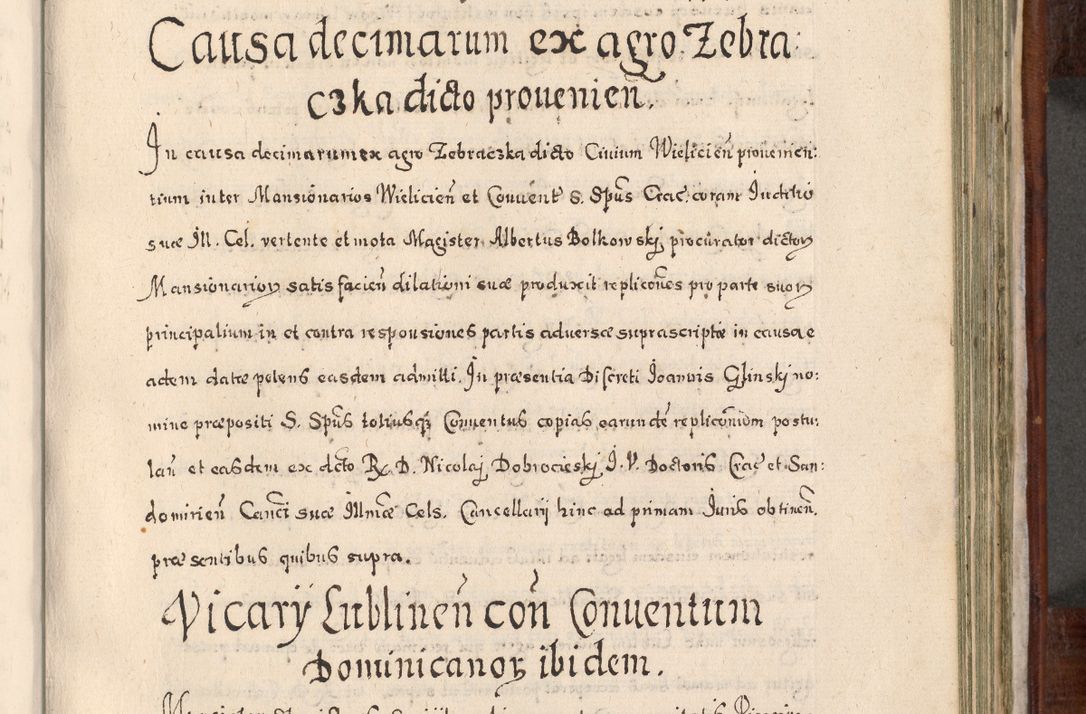 Causa decimarum ex agro Zebra:
czka dicto prouenień.
In causa decimarum ex agro Zebraczka dicto Ciuium Wielicień prouenien:
tium inter Mansionarios Wielicień et Conuent S. Spūs Crac. coram Iuditio
suæ Ill. Cel. vertente et mota Magister Albertus Bolkowskj procurator dictoꝝ
Mansionarioꝝ satisfacień dilationi suæ produxit replicōes pro parte suoꝝ
principalium in et contra responsiones partis aduersæ suprascriptæ in causa e
adem datæ petens easdem admitti. In præsentia Discreti Ioannis Glinskj no:
mine præpositi S. Spūs totiusqꝫ Conuentus copias earundē replicōnum postu:
lań et easdem ex dcto R. D. Nicolaj Dobrocieskj I. V. Doctoris Crac et San:
domirień Canci suæ Illmæ Cels. Cancellarij hinc ad primam Iuris obtineń.
præsentibus quibus supra.
Vicarÿ Lublineń coń Conuentum
Dominicanoꝝ ibidem.
Magister